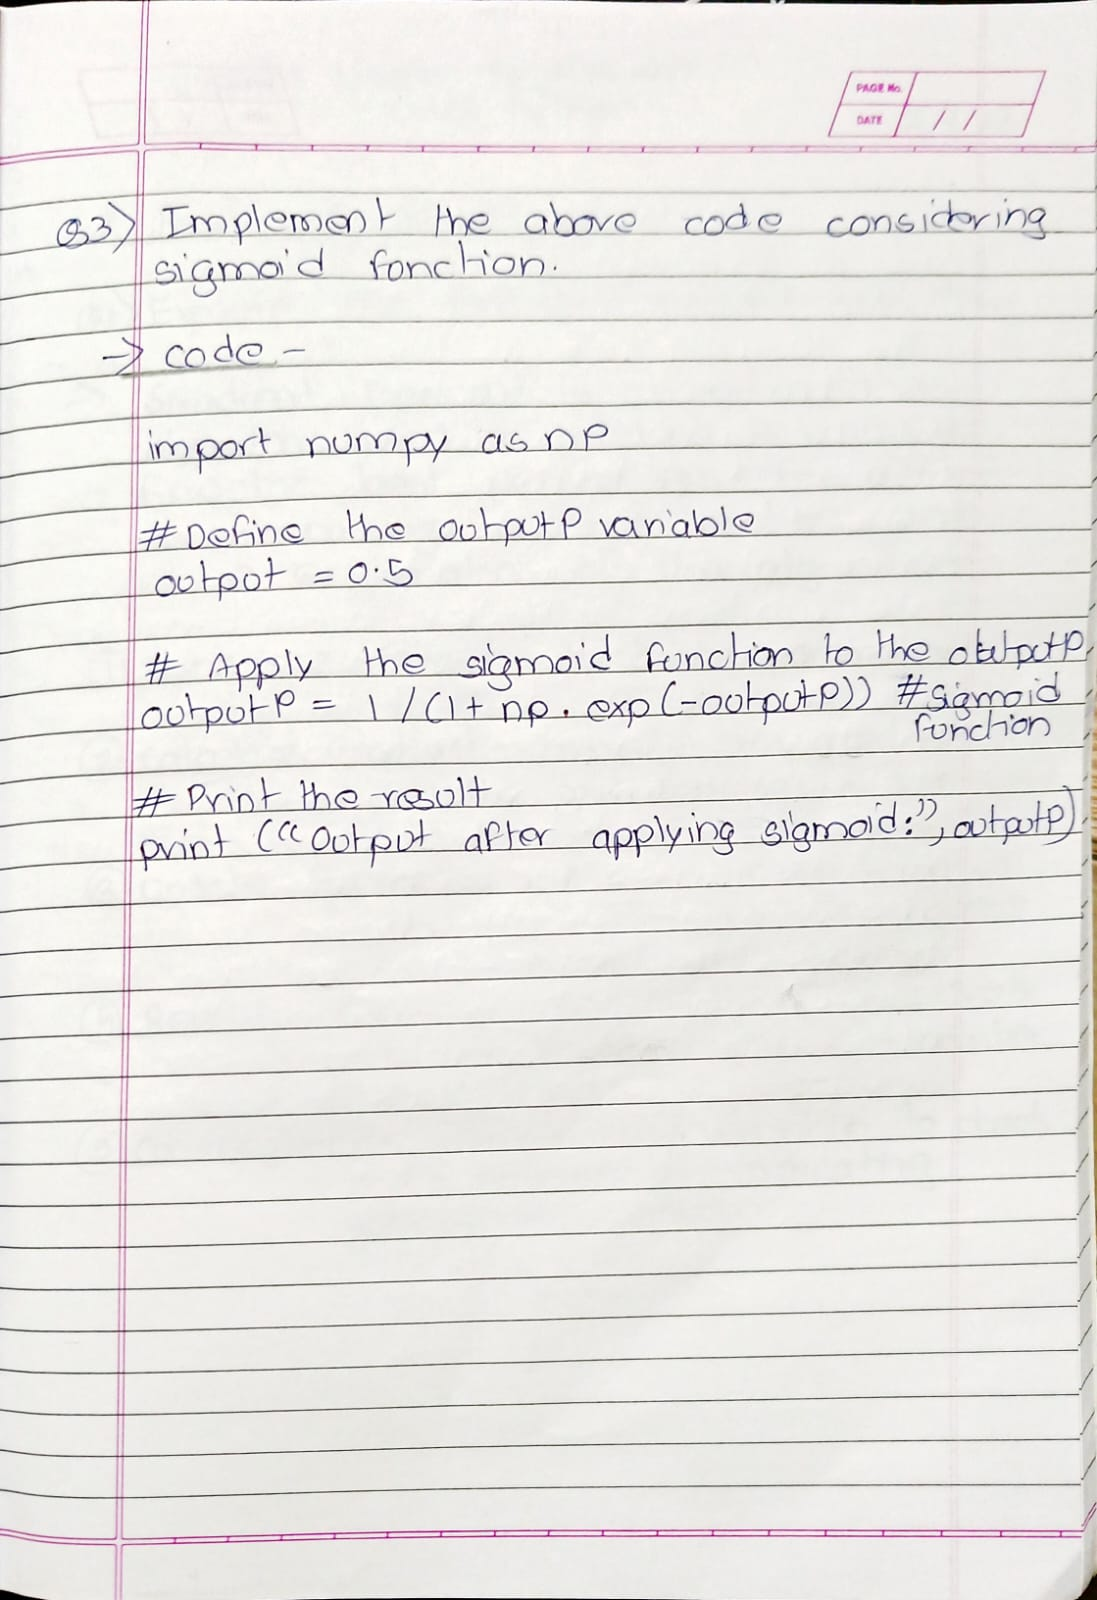 PAGE No.
DATE / /
Q3) Implement the above code considering
sigmoid function.
→ code -
import numpy as np
# Define the outputP variable
output = 0.5
# Apply the sigmoid function to the outputP
outputP = 1 / (1 + np.exp(-outputP)) # sigmoid
function
# Print the result
print ("Output after applying sigmoid:", outputP)